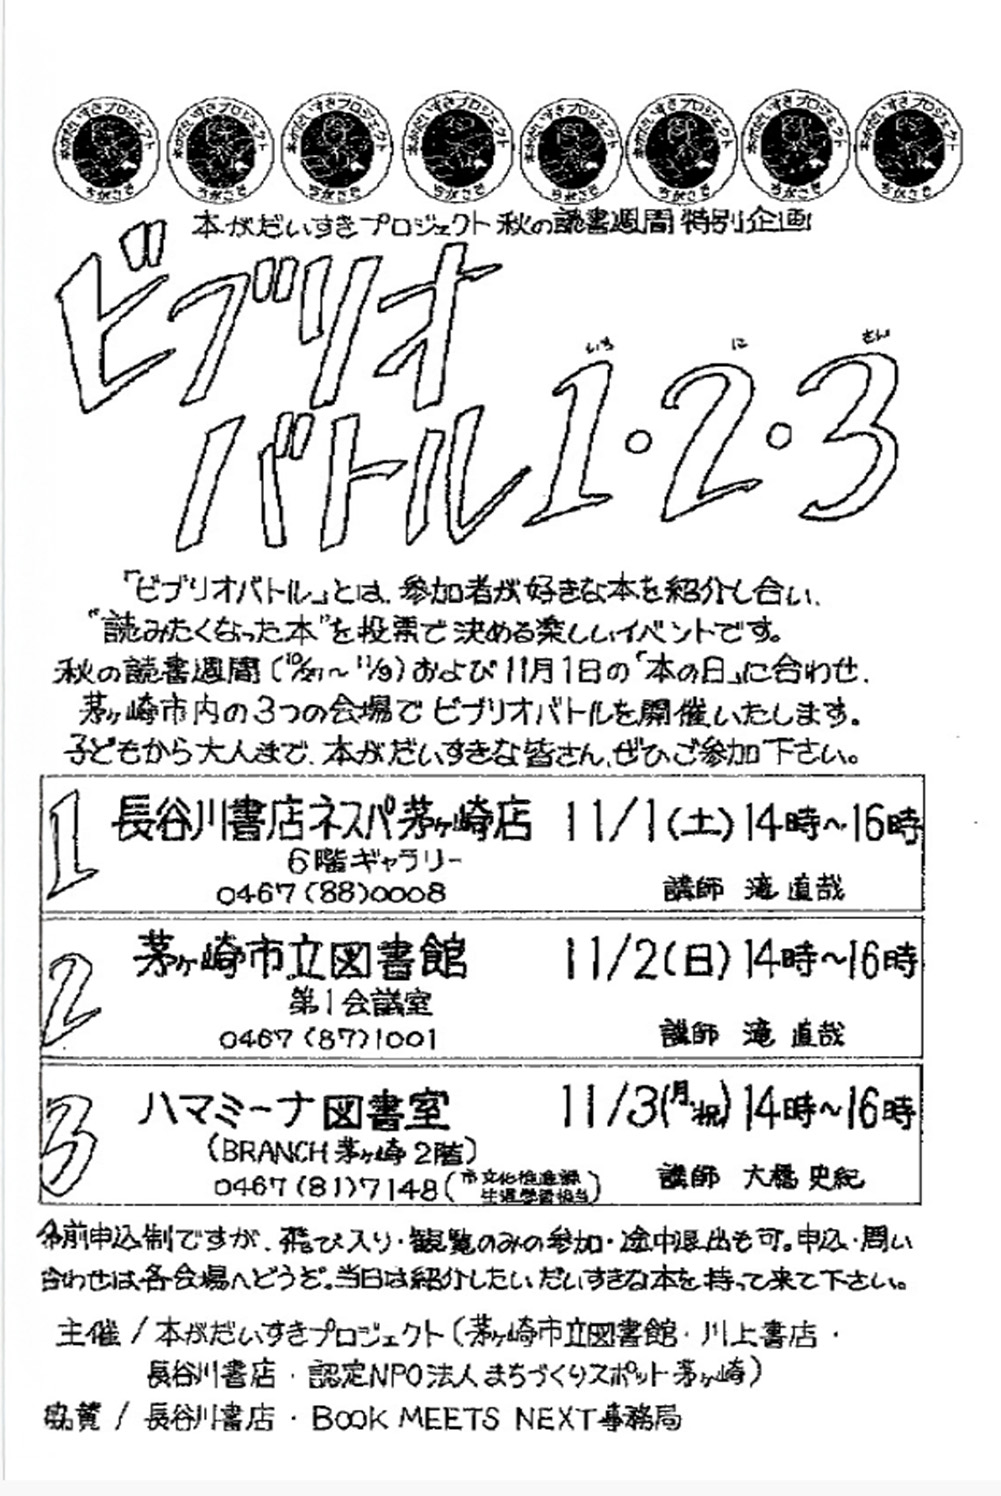 本がだいすきプロジェクト ちがさき 本がだいすきプロジェクト ちがさき 本がだいすきプロジェクト ちがさき 本がだいすきプロジェクト ちがさき 本がだいすきプロジェクト ちがさき 本がだいすきプロジェクト ちがさき 本がだいすきプロジェクト ちがさき 本がだいすきプロジェクト ちがさき
本がだいすきプロジェクト 秋の読書週間 特別企画
ビブリオ
いち に さん
バトル 1・2・3
「ビブリオバトル」とは、参加者が好きな本を紹介し合い、
"読みたくなった本"を投票で決める楽しいイベントです。
秋の読書週間(10/27～11/9)および11月1日の「本の日」に合わせ、
茅ヶ崎市内の3つの会場でビブリオバトルを開催いたします。
子どもから大人まで、本がだいすきな皆さん、ぜひご参加下さい。
1 長谷川書店ネスパ茅ヶ崎店 11/1(土)14時～16時
6階ギャラリー
0467(88)0008 講師 滝 直哉
2 茅ヶ崎市立図書館 11/2(日)14時～16時
第1会議室
0467(87)1001 講師 滝 直哉
3 ハマミーナ図書室 11/3(月・祝)14時～16時
(BRANCH茅ヶ崎2階)
0467(81)7148(市文化推進課 生涯学習担当) 講師 大橋 史紀
事前申込制ですが、飛び入り・観覧のみの参加・途中退出も可。申込・問い
合わせは各会場へどうぞ。当日は紹介したいだいすきな本を持って来て下さい。
主催/本がだいすきプロジェクト(茅ヶ崎市立図書館・川上書店・
長谷川書店・認定NPO法人まちづくりスポット茅ヶ崎)
協賛/長谷川書店・BOOK MEETS NEXT事務局